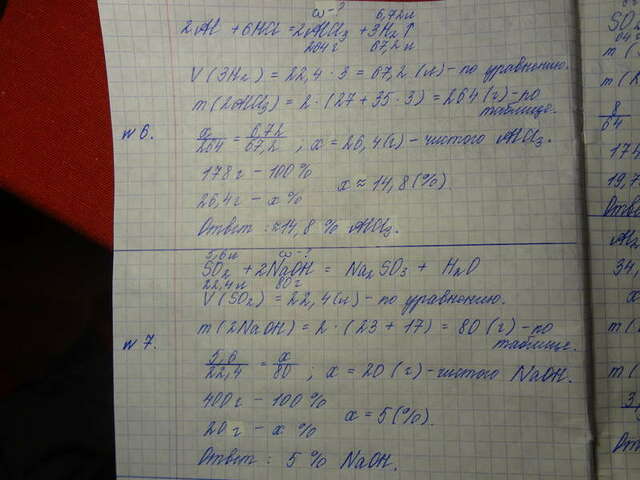 ω-? 6,72л
2Al + 6HCl = 2AlCl₃ + 3H₂↑
264г 67,2л
V(3H₂) = 22,4 · 3 = 67,2 (л) - по уравнению.
m(2AlCl₃) = 2 · (27 + 35 · 3) = 264 (г) - по
таблице.
№6. x/264 = 6,72/67,2 ; x = 26,4 (г) - чистого AlCl₃.
178г - 100%
26,4г - x%
x ≈ 14,8 (%).
Ответ: ≈14,8 % AlCl₃.
5,6л ω-?
SO₂ + 2NaOH = Na₂SO₃ + H₂O
22,4л 80г
V(SO₂) = 22,4 (л) - по уравнению.
m(2NaOH) = 2 · (23 + 17) = 80 (г) - по
таблице.
№7. 5,6/22,4 = x/80 ; x = 20 (г) - чистого NaOH.
400г - 100%
20г - x%
x = 5 (%).
Ответ: 5 % NaOH.
SO₂
64г
m(
m(
8
64
174
19,7
Отв
Al₂
34,
x
m(
m(
3,
Отв